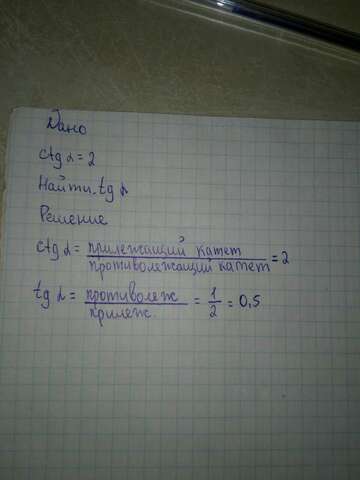 Дано
ctg α = 2
Найти tg α
Решение
ctg α = прилежащий катет / противолежащий катет = 2
tg α = противолеж / прилеж. = 1/2 = 0,5